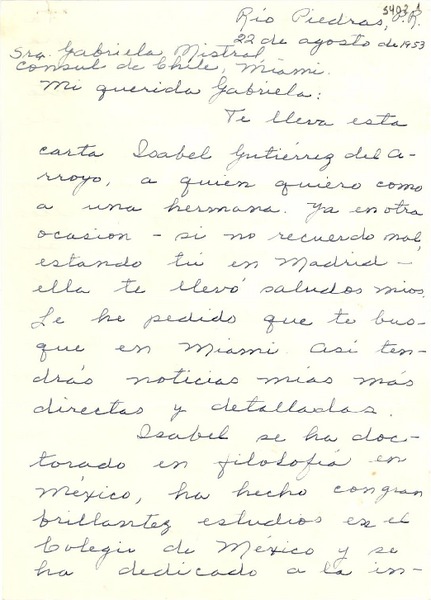 5403.1
Río Piedras, P.R.
22 de agosto de 1953
Sra. Gabriela Mistral
Consul de Chile, Miami.
Mi querida Gabriela:
Te lleva esta
carta Isabel Gutiérrez del A-
rroyo, a quien quiero como
a una hermana. Ya en otra
ocasion - si no recuerdo mal,
estando tú en Madrid -
ella te llevó saludos mios.
Le he pedido que te bus-
que en Miami. Así ten-
drás noticias mías más
directas y detalladas.
Isabel se ha doc-
torado en filosofía en
México, ha hecho con gran
brillantez estudios en el
Colegio de México y se
ha dedicado a la in-